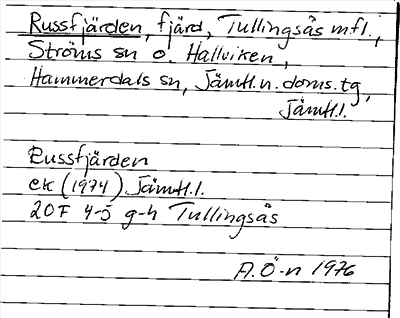 Russfjärden, fjärd, Tullingsås m fl.,
Ströms sn o. Hallviken,
Hammerdals sn, Jämtl. n. doms. tg,
Jämtl. l.
Russfjärden
ek (1974) Jämtl. l.
20F 4-5 g-h Tullingsås
A. Ö-n 1976